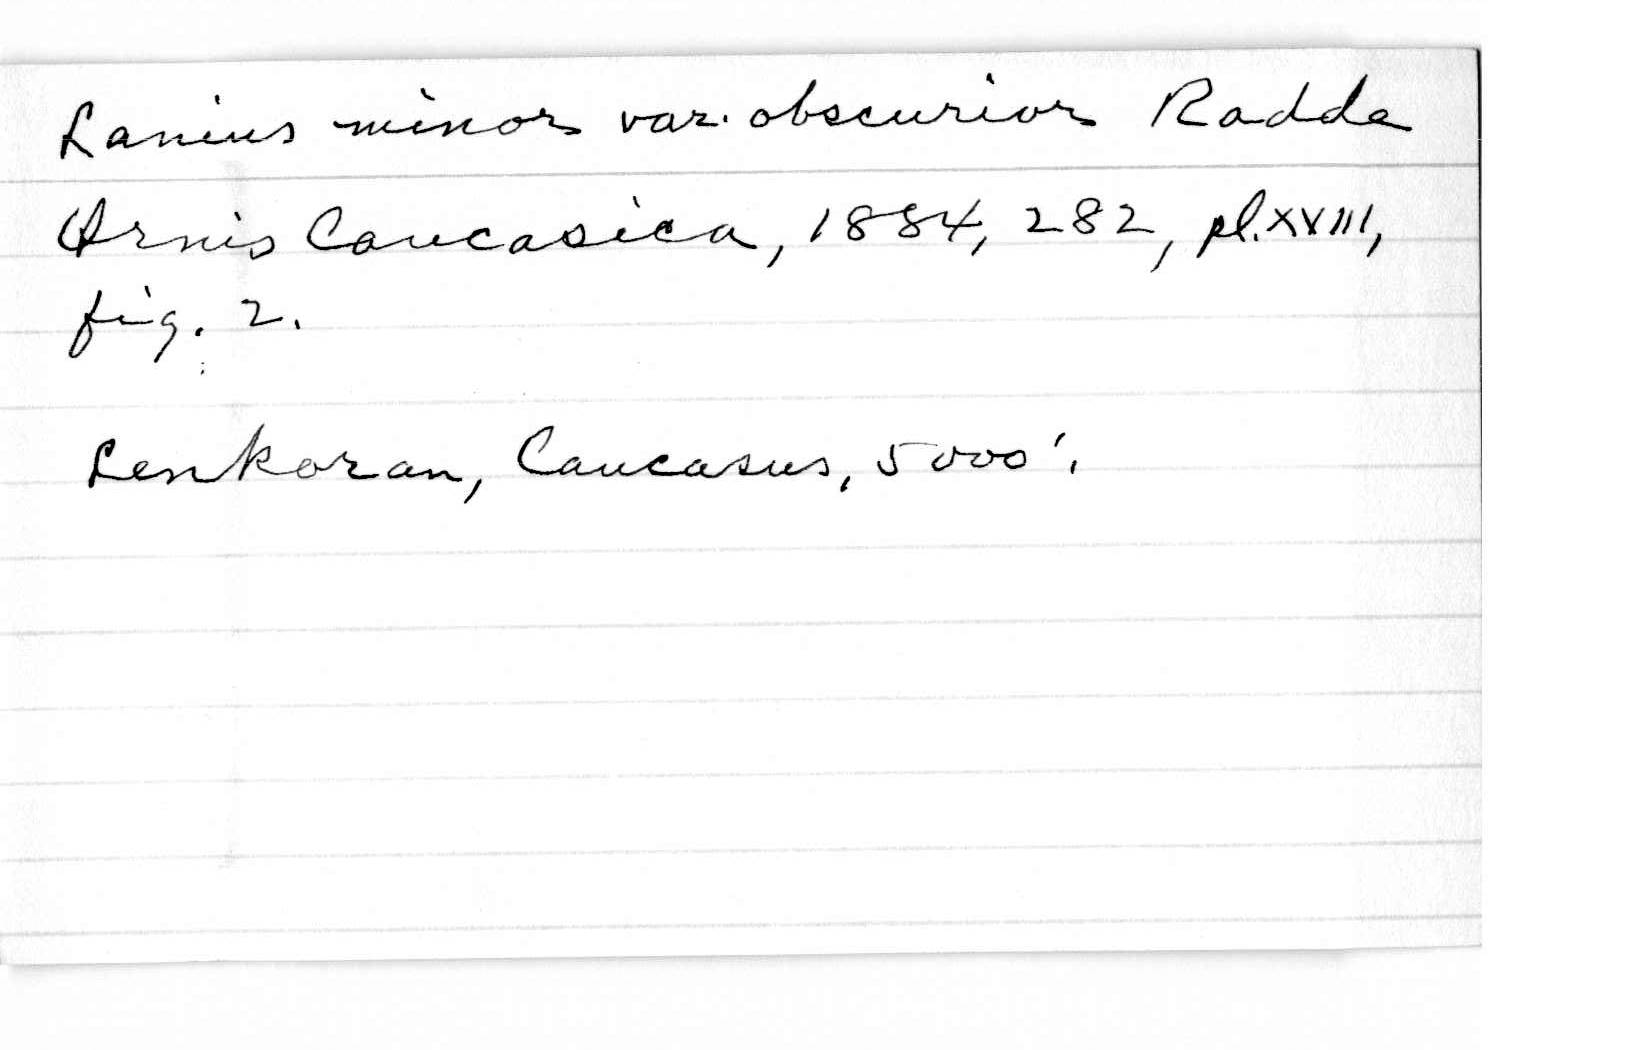 Lanius minor var. obscurior Radde
Ornis Caucasica, 1884, 282, pl. XVIII,
fig. 2.
Lenkoran, Caucasus, 5000'.